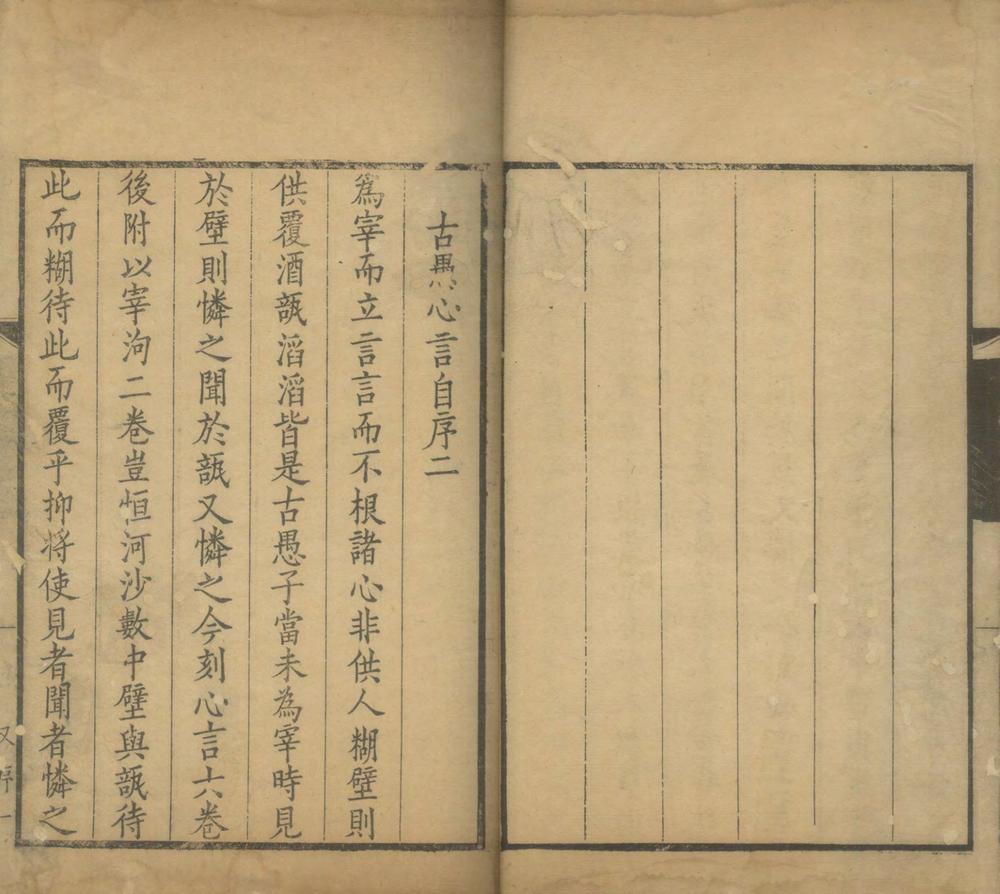 古愚心言自序二
爲宰而立言言而不根諸心非供人糊壁則
供覆酒瓿滔滔皆是古愚子當未為宰時見
於壁則憐之聞於瓿又憐之今刻心言六卷
後附以宰泃二卷豈恒河沙數中壁與瓿待
此而糊待此而覆乎抑将使見者聞者憐之
又序一